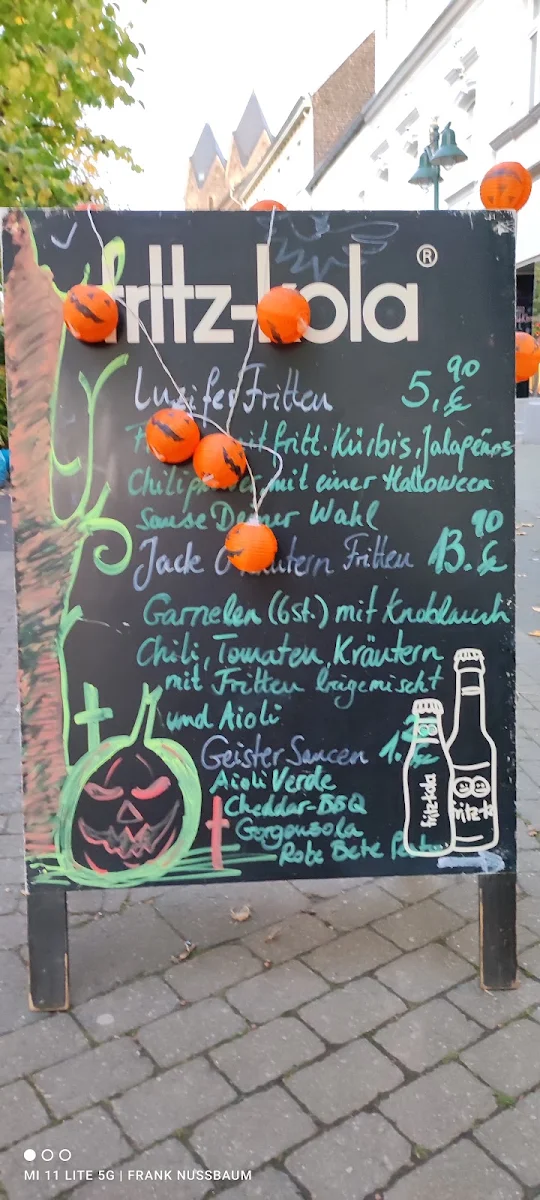 fritz-kola®
Luzifer Fritten 5,90 €
mit fritt. Kürbis, Jalapeños
mit einer Halloween
Sause Deiner Wahl
Jack Fritten 13.90 €
Garnelen (6st.) mit Knoblauch
Chili, Tomaten, Kräutern
mit Fritten beigemischt
und Aioli
Geister Saucen
Aioli Verde
Cheddar-BBQ
Gorgonzola
Rote Bete
fritz-kola
MI 11 LITE 5G | FRANK NUSSBAUM